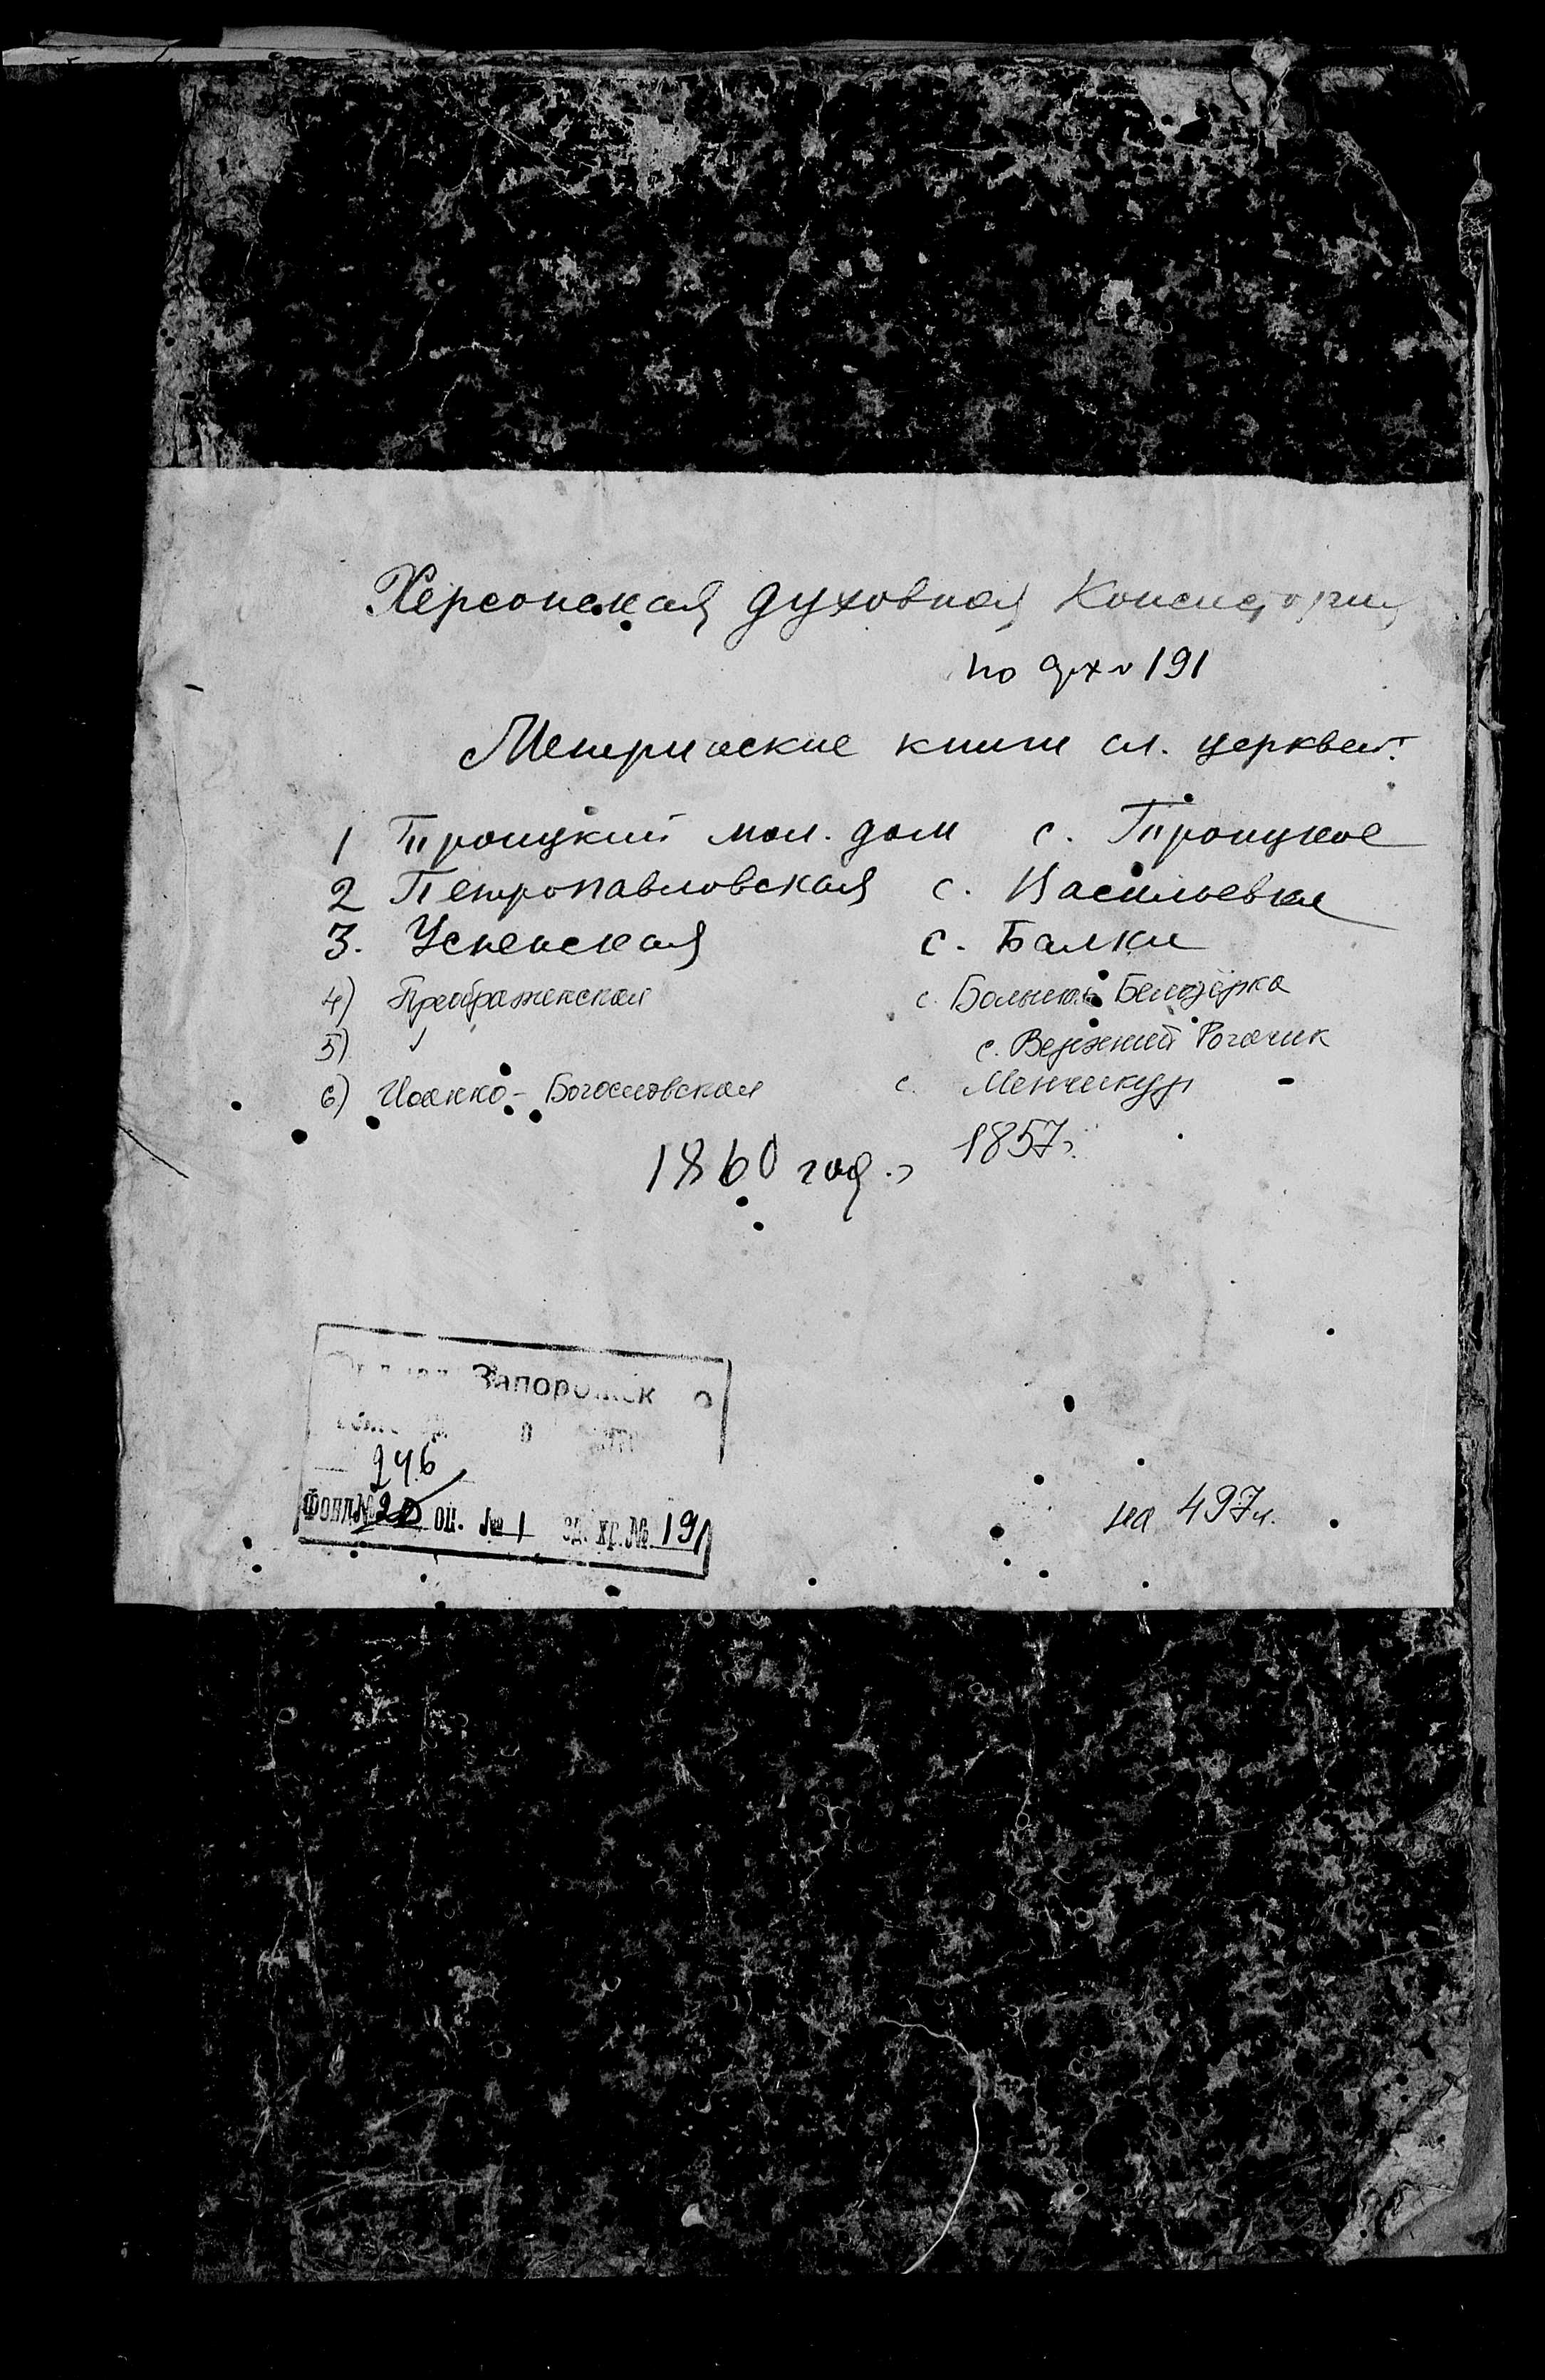 Херсонская духовная Консистория
по 191
Метрические книги сл. церквей:
1 Троицкий мол. дом с. Троицкое
2 Петропавловская с. Васильевка
3. Успенская с. Балки
4) Преображенская с. Большая Белозёрка
5) с. Верхний Рогачик
6) Иоанно-Богословская с. Менчикур
1860 год. 1857г.
Запорожск
246
Фонд № 20 оп. № 1 ед. хр. № 191
на 497л.